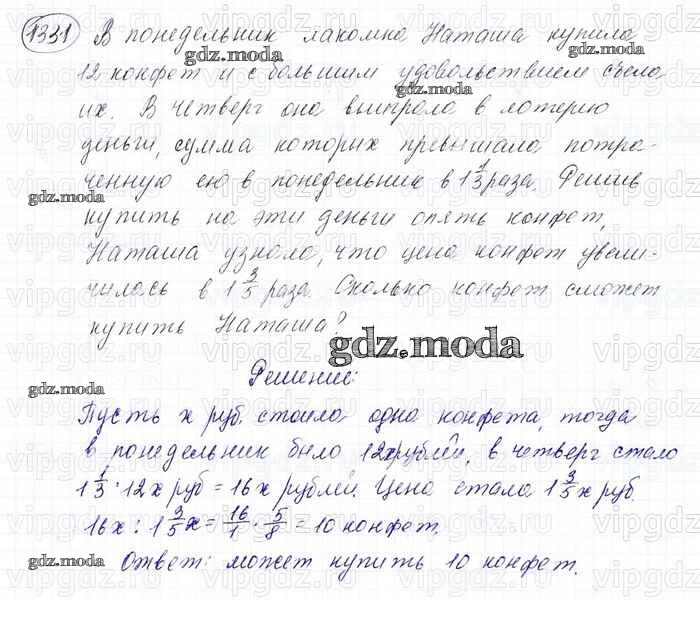 1331 В понедельник лакомка Наташа купила
12 конфет и с большим удовольствием съела
их. В четверг она выиграла в лотерею
деньги, сумма которых превышала потра-
ченную ею в понедельник в 1 1/3 раза. Решив
купить на эти деньги опять конфет,
Наташа узнала, что цена конфет увели-
чилась в 1 3/5 раза. Сколько конфет сможет
купить Наташа?
gdz.moda
Решение:
Пусть х руб. стоила одна конфета, тогда
в понедельник было 12х рублей, в четверг стало
1 1/3 · 12х руб = 16х рублей. Цена стала 1 3/5 х руб.
16х : 1 3/5 х = 16/1 · 5/8 = 10 конфет.
Ответ: может купить 10 конфет.